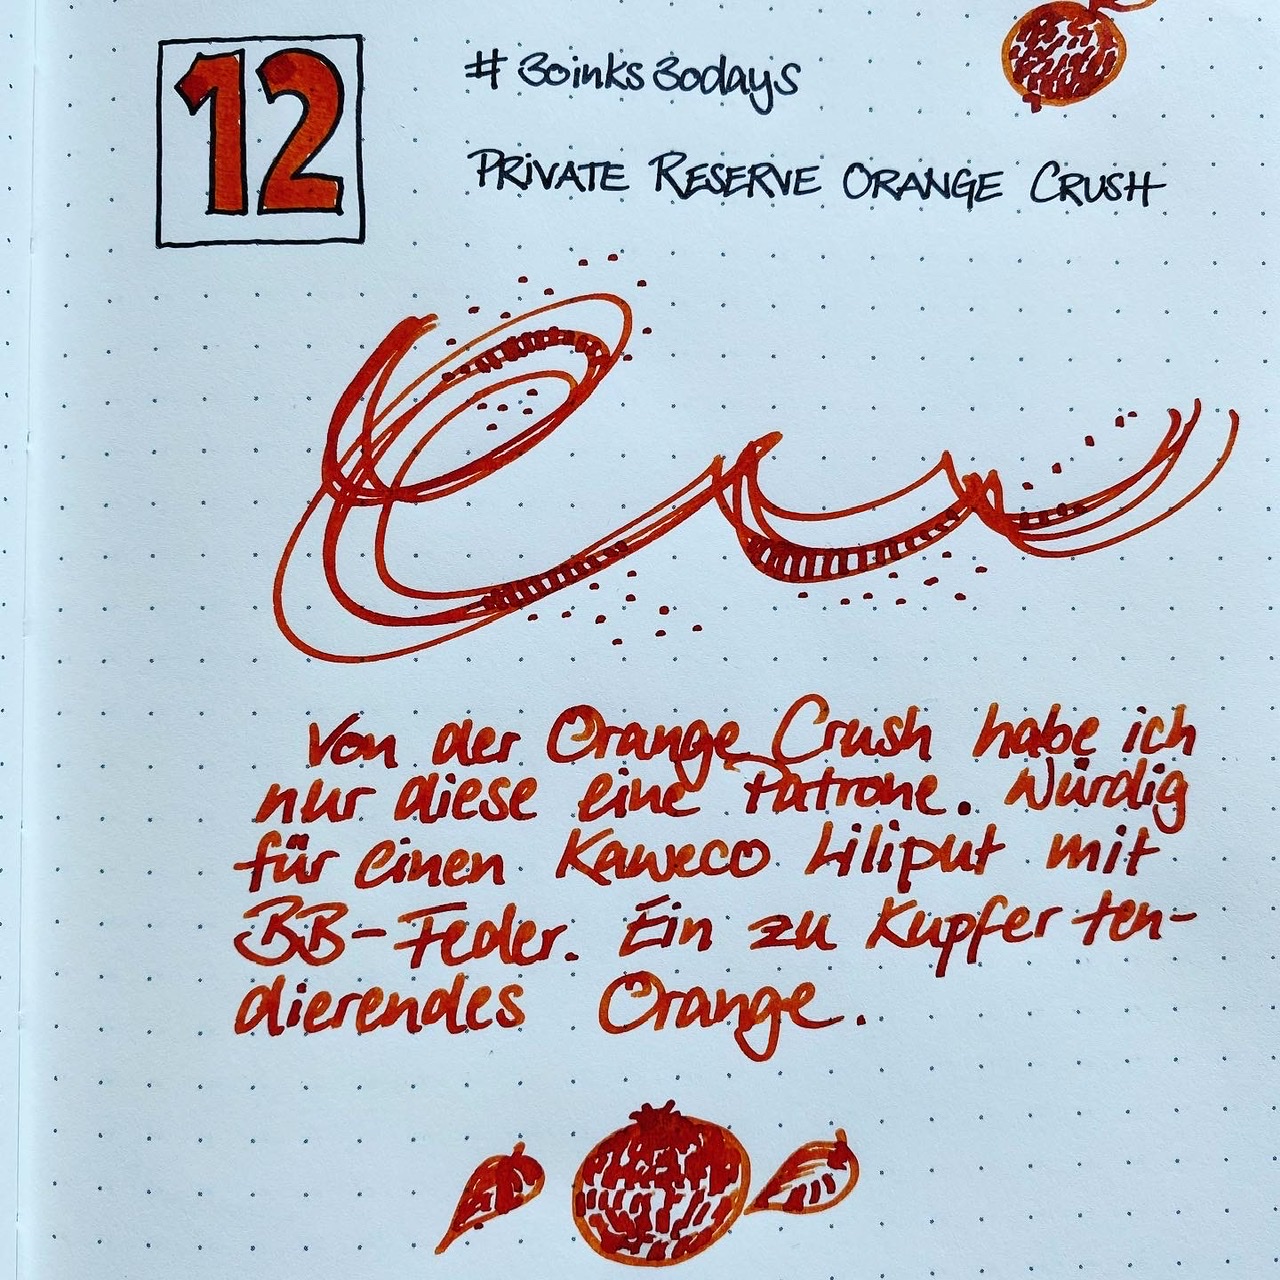 12
#30inks30days
PRIVATE RESERVE ORANGE CRUSH
Von der Orange Crush habe ich
nur diese eine Patrone. Würdig
für einen Kaweco Liliput mit
BB-Feder. Ein zu Kupfer ten-
dierendes Orange.